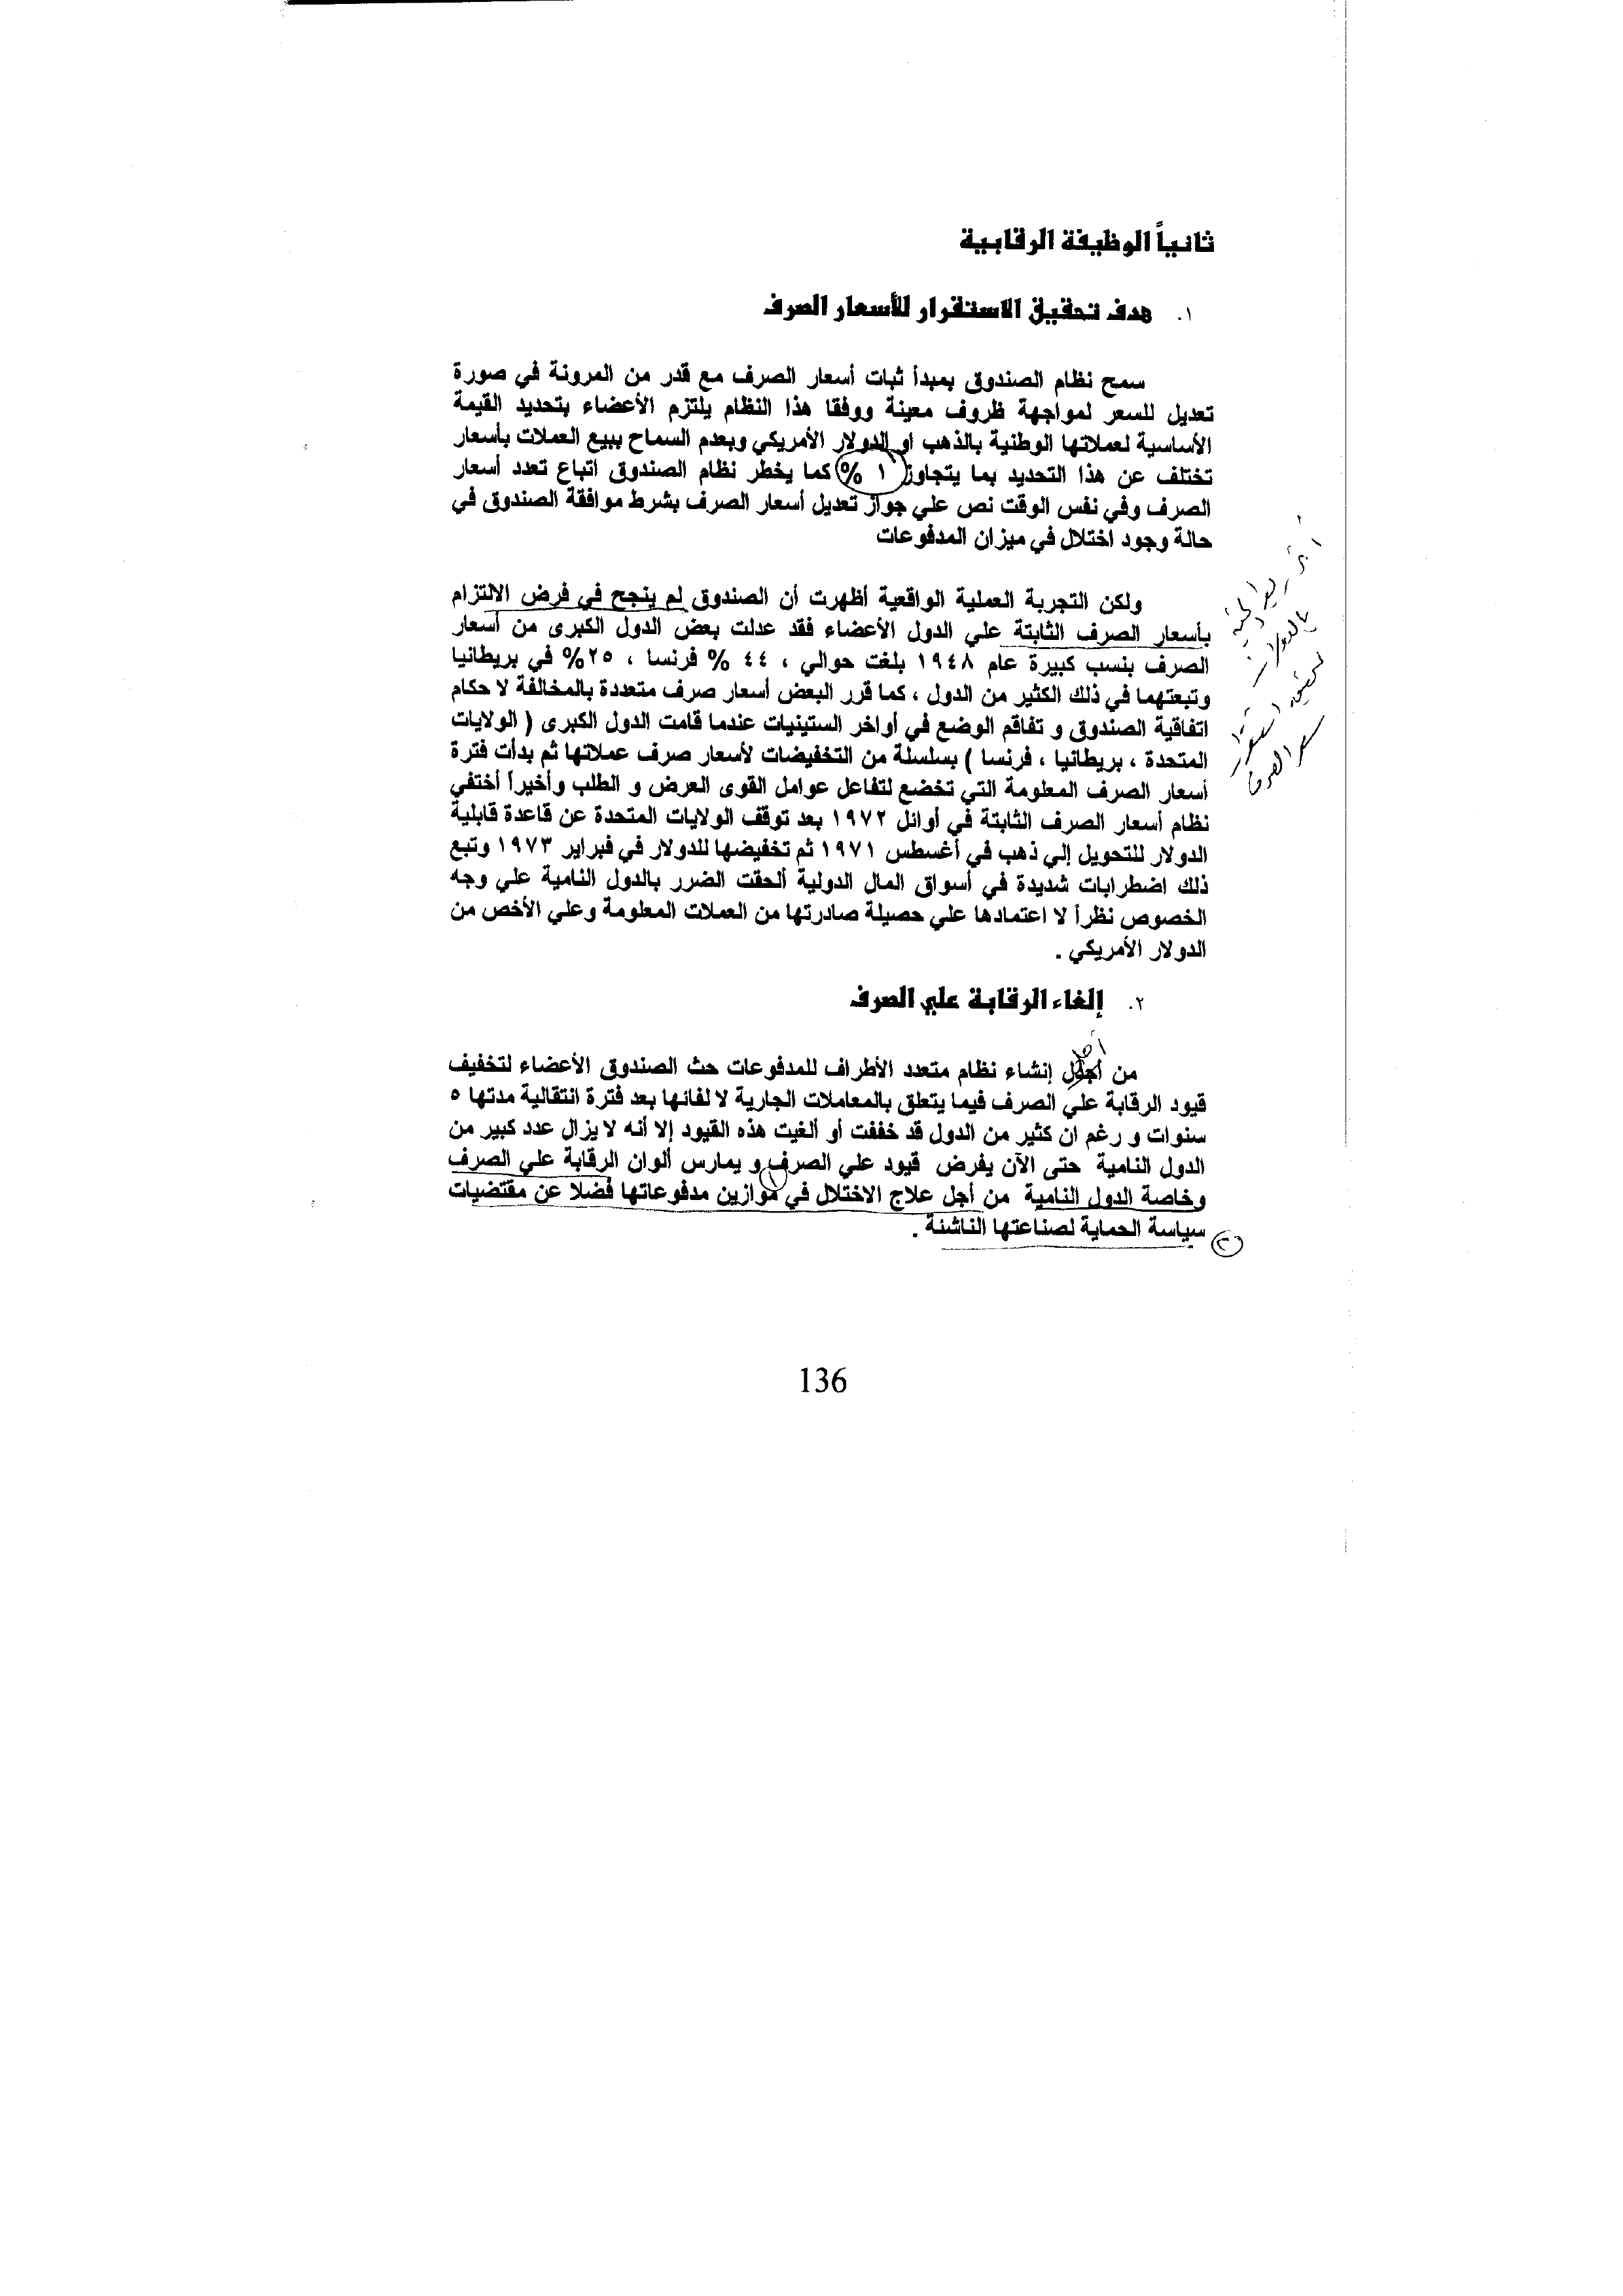 ثانياً الوظيفة الرقابية
١. هدف تحقيق الاستقرار للأسعار الصرف
سمح نظام الصندوق بمبدأ ثبات أسعار الصرف مع قدر من المرونة في صورة
تعديل للسعر لمواجهة ظروف معينة ووفقا هذا النظام يلتزم الأعضاء بتحديد القيمة
الأساسية لعملاتها الوطنية بالذهب او الدولار الأمريكي وبعدم السماح ببيع العملات بأسعار
تختلف عن هذا التحديد بما يتجاوز ١ % كما يخطر نظام الصندوق اتباع تعدد أسعار
الصرف وفي نفس الوقت نص علي جواز تعديل أسعار الصرف بشرط موافقة الصندوق في
حالة وجود اختلال في ميزان المدفوعات
ولكن التجربة العملية الواقعية أظهرت أن الصندوق لم ينجح في فرض الالتزام
بأسعار الصرف الثابتة علي الدول الأعضاء فقد عدلت بعض الدول الكبرى من أسعار
الصرف بنسب كبيرة عام ١٩٤٨ بلغت حوالي ، ٤٤ % فرنسا ، ٢٥% في بريطانيا
وتبعتهما في ذلك الكثير من الدول ، كما قرر البعض أسعار صرف متعددة بالمخالفة لا حكام
اتفاقية الصندوق و تفاقم الوضع في أواخر الستينيات عندما قامت الدول الكبرى ( الولايات
المتحدة ، بريطانيا ، فرنسا ) بسلسلة من التخفيضات لأسعار صرف عملاتها ثم بدأت فترة
أسعار الصرف المعلومة التي تخضع لتفاعل عوامل القوى العرض و الطلب وأخيراً أختفي
نظام أسعار الصرف الثابتة في أوائل ١٩٧٢ بعد توقف الولايات المتحدة عن قاعدة قابلية
الدولار للتحويل إلي ذهب في أغسطس ١٩٧١ ثم تخفيضها للدولار في فبراير ١٩٧٣ وتبع
ذلك اضطرابات شديدة في أسواق المال الدولية ألحقت الضرر بالدول النامية علي وجه
الخصوص نظراً لا اعتمادها علي حصيلة صادرتها من العملات المعلومة وعلي الأخص من
الدولار الأمريكي .
٢. إلغاء الرقابة علي الصرف
من أجل إنشاء نظام متعدد الأطراف للمدفوعات حث الصندوق الأعضاء لتخفيف
قيود الرقابة علي الصرف فيما يتعلق بالمعاملات الجارية لا لغائها بعد فترة انتقالية مدتها ٥
سنوات و رغم ان كثير من الدول قد خففت أو ألغيت هذه القيود إلا أنه لا يزال عدد كبير من
الدول النامية حتى الآن يفرض قيود علي الصرف و يمارس ألوان الرقابة علي الصرف
وخاصة الدول النامية من أجل علاج الاختلال في موازين مدفوعاتها فضلا عن مقتضيات
سياسة الحماية لصناعتها الناشئة .
136